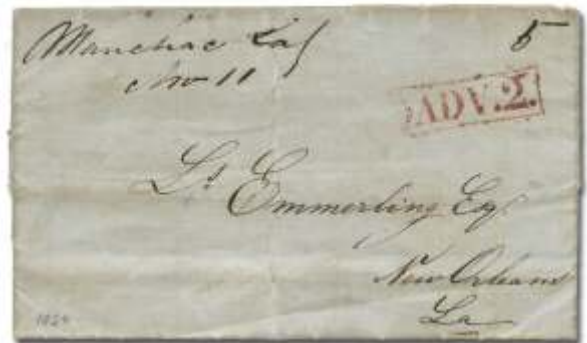 Manchac La
Nov 11
5
ADV.2.
Ls Emmerling Esq
New Orleans
La